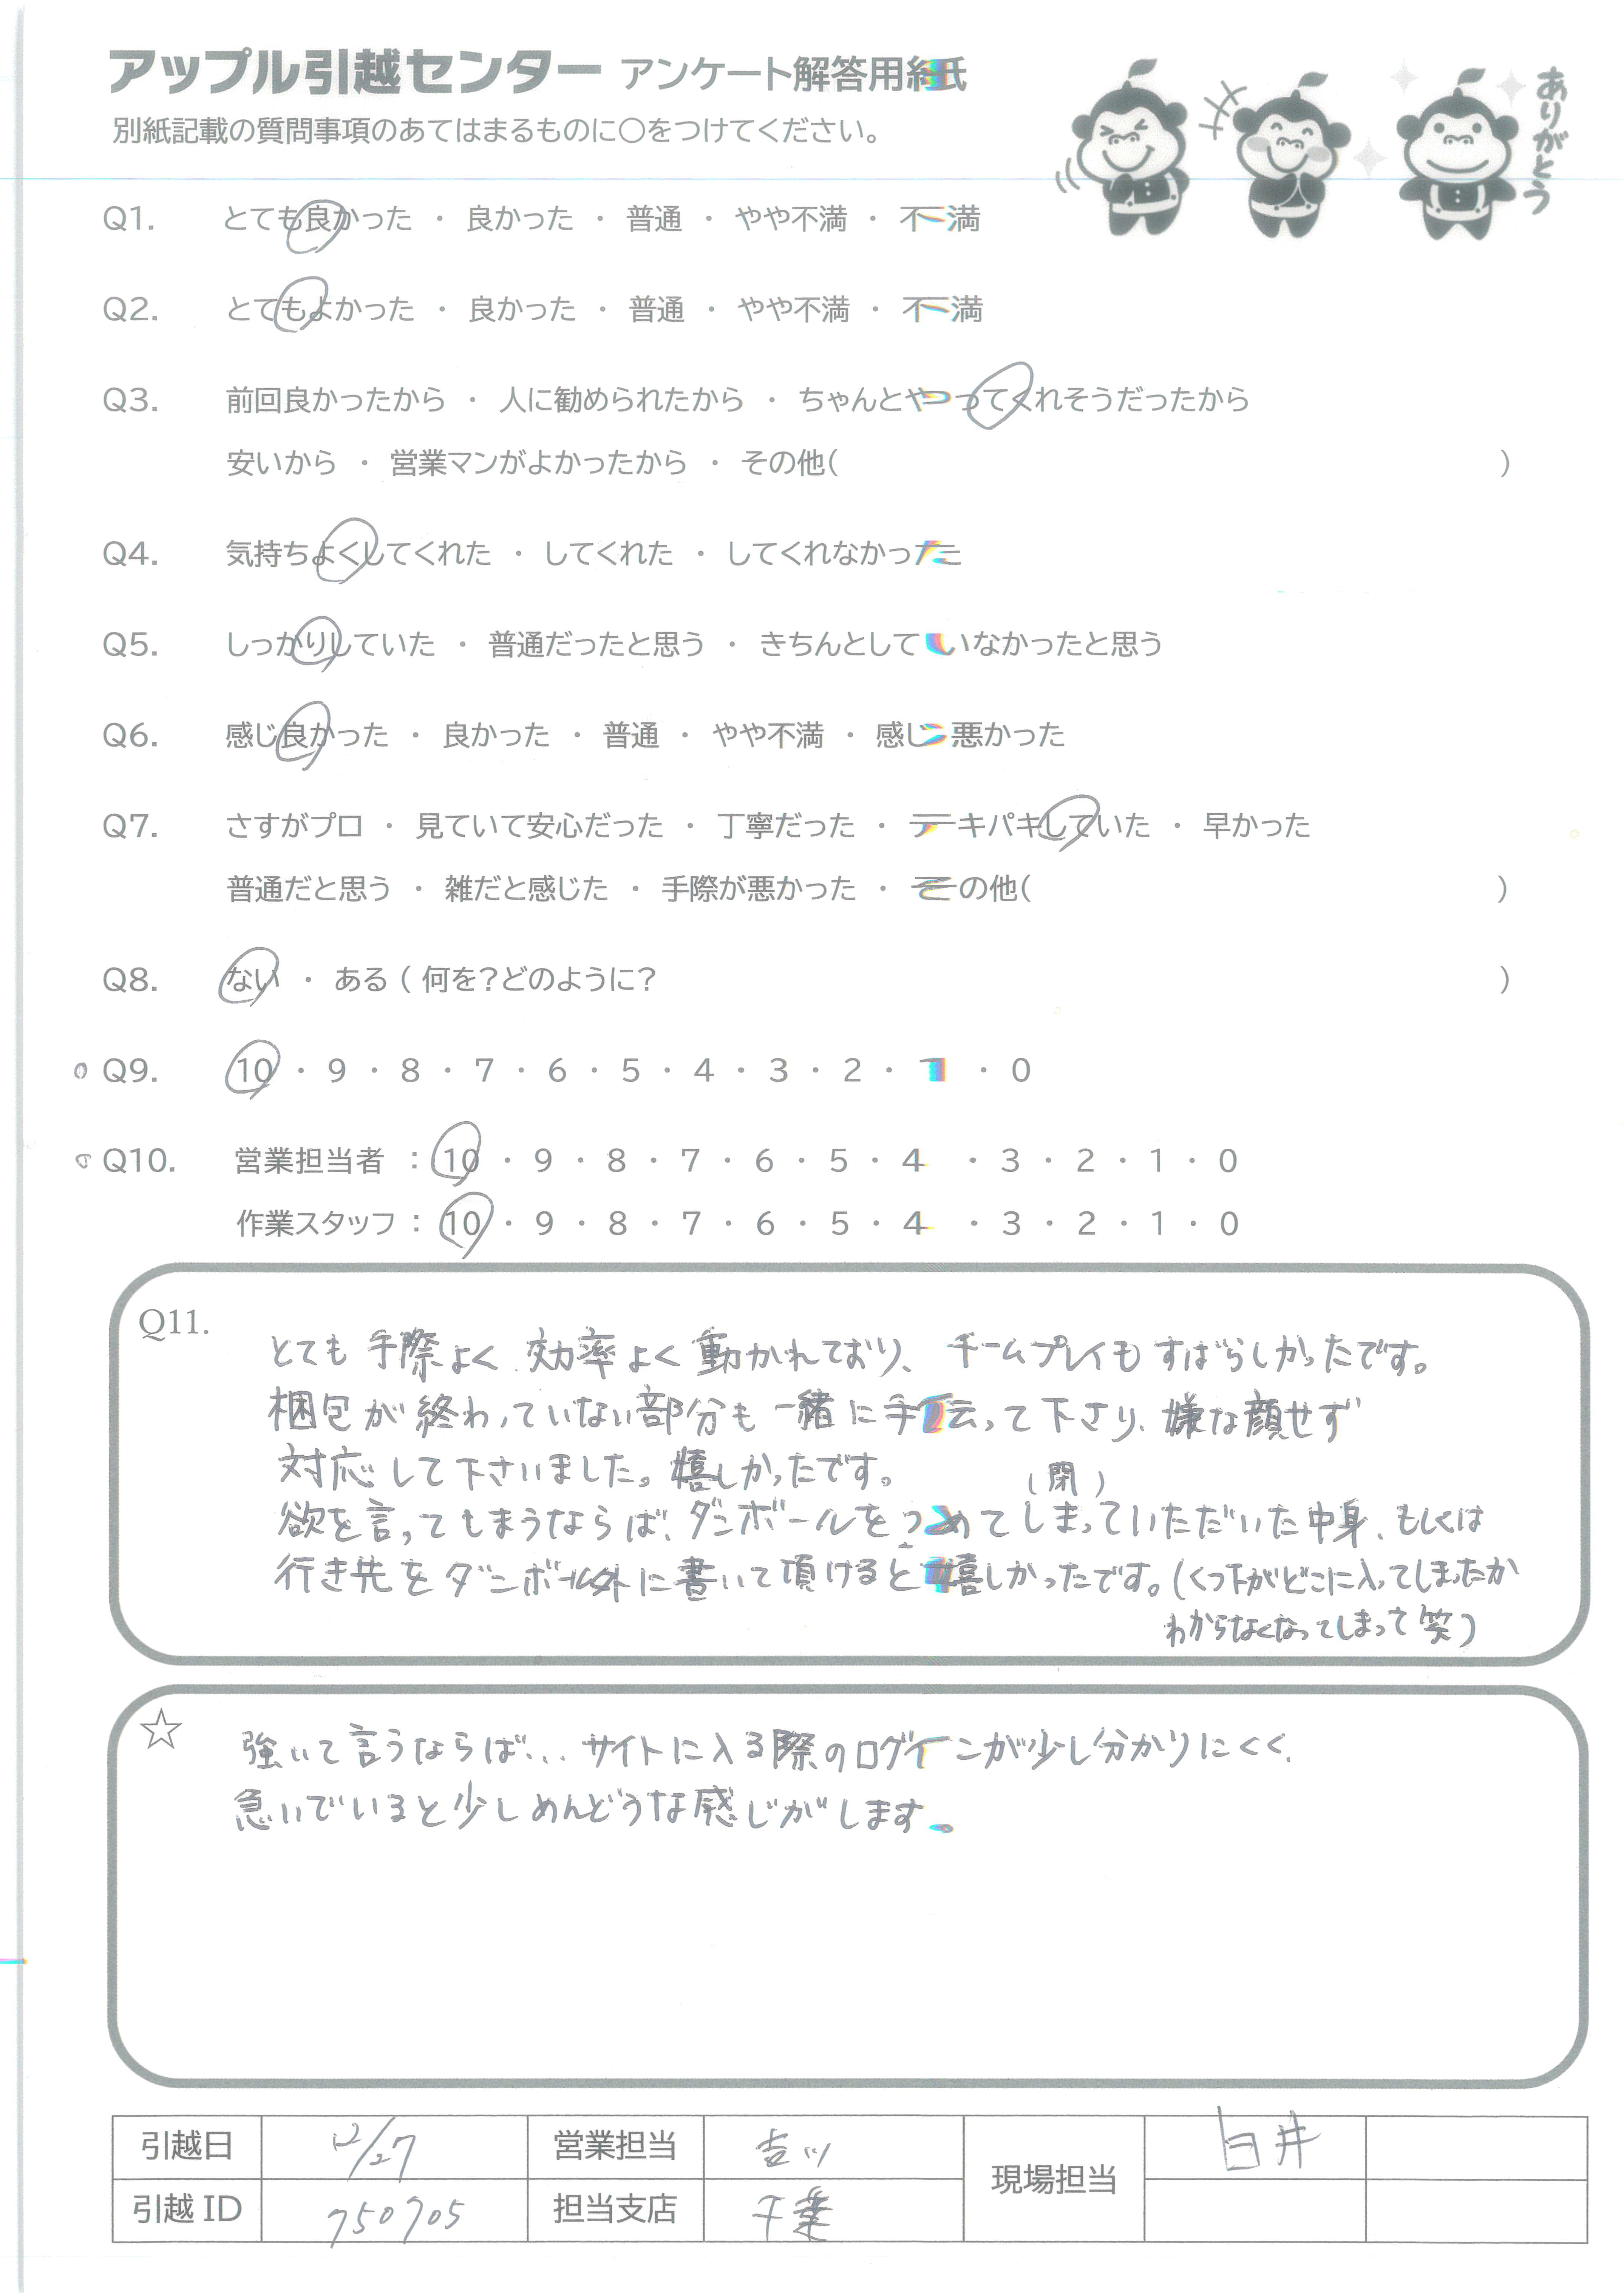 アップル引越センター アンケート解答用紙
別紙記載の質問事項のあてはまるものに○をつけてください。
ありがとう
Q1. とても良かった ・ 良かった ・ 普通 ・ やや不満 ・ 不満
Q2. とてもよかった ・ 良かった ・ 普通 ・ やや不満 ・ 不満
Q3. 前回良かったから ・ 人に勧められたから ・ ちゃんとやってくれそうだったから
安いから ・ 営業マンがよかったから ・ その他( )
Q4. 気持ちよくしてくれた ・ してくれた ・ してくれなかった
Q5. しっかりしていた ・ 普通だったと思う ・ きちんとしていなかったと思う
Q6. 感じ良かった ・ 良かった ・ 普通 ・ やや不満 ・ 感じ悪かった
Q7. さすがプロ ・ 見ていて安心だった ・ 丁寧だった ・ テキパキしていた ・ 早かった
普通だと思う ・ 雑だと感じた ・ 手際が悪かった ・ その他( )
Q8. ない ・ ある ( 何を?どのように? )
Q9. 10 ・ 9 ・ 8 ・ 7 ・ 6 ・ 5 ・ 4 ・ 3 ・ 2 ・ 1 ・ 0
Q10. 営業担当者 : 10 ・ 9 ・ 8 ・ 7 ・ 6 ・ 5 ・ 4 ・ 3 ・ 2 ・ 1 ・ 0
作業スタッフ : 10 ・ 9 ・ 8 ・ 7 ・ 6 ・ 5 ・ 4 ・ 3 ・ 2 ・ 1 ・ 0
Q11. とても手際よく効率よく動かれており、チームプレイもすばらしかったです。
梱包が終わっていない部分も一緒に手伝って下さり、嫌な顔せず
対応して下さいました。嬉しかったです。
(閉)
欲を言ってしまうならば、ダンボールをつめてしまっていただいた中身、もしくは
行き先をダンボール外に書いて頂けると嬉しかったです。(くつ下がどこに入ってしまったか
わからなくなってしまって笑)
☆ 強いて言うならば... サイトに入る際のログインが少し分かりにくく、
急いでいると少しめんどうな感じがします。
引越日 12/27 営業担当 吉川 現場担当 白井
引越ID 750705 担当支店 千葉